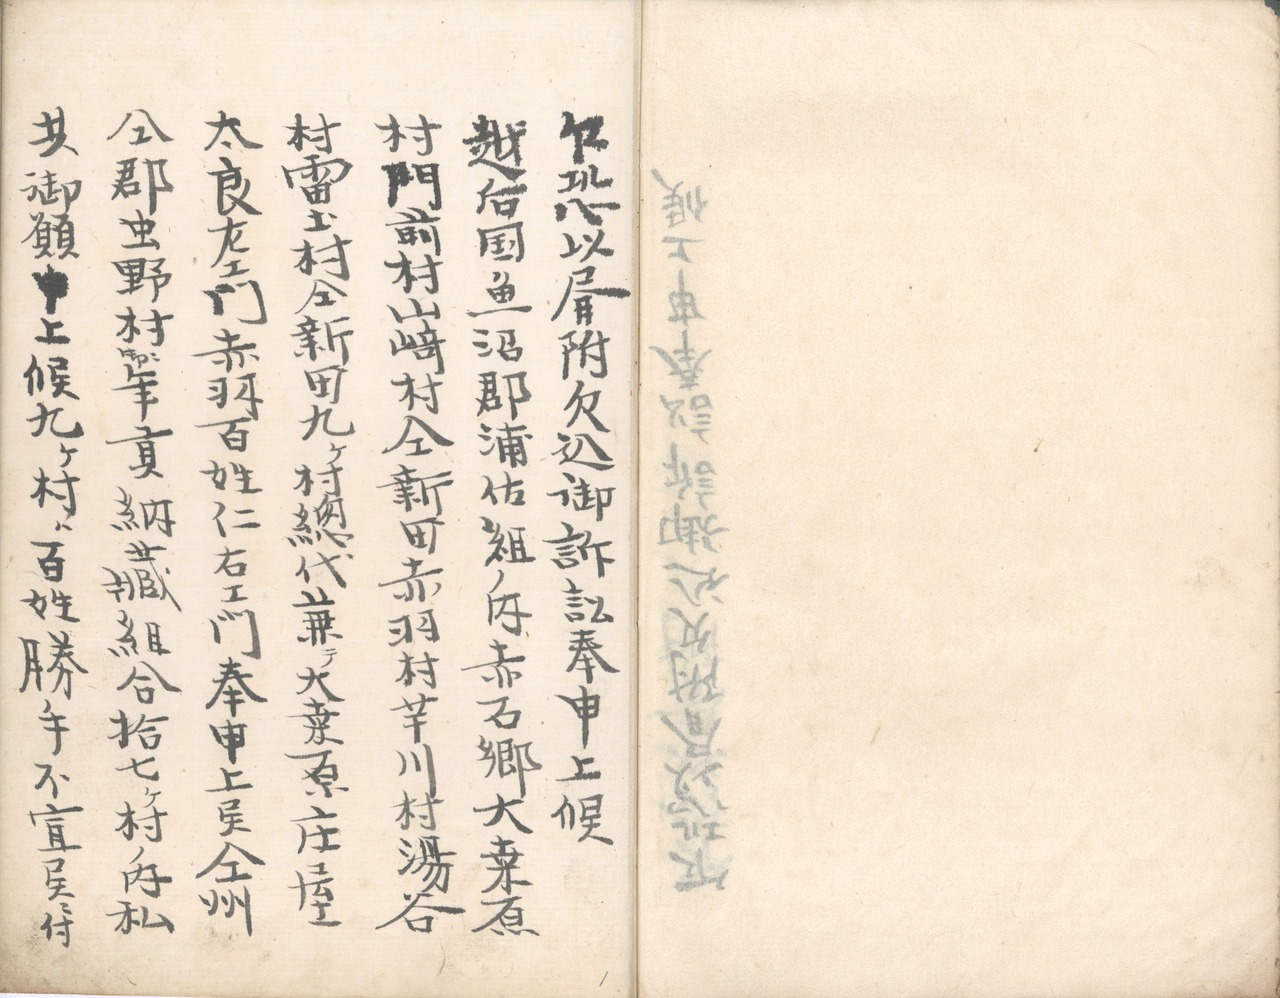 乍恐以屑附欠込御訴訟奉申上候
越后国魚沼郡浦佐組ノ内赤石郷大桒原
村門前村山崎村仝新田赤羽村芋川村湯谷
村雷土村仝新田九ヶ村総代兼テ大桒原庄屋
太良左エ門赤羽百姓仁右エ門奉申上候仝州
仝郡虫野村御年貢納蔵組合拾七ヶ村ノ内私
共御願申上候九ヶ村ハ百姓勝手不宜候ニ付